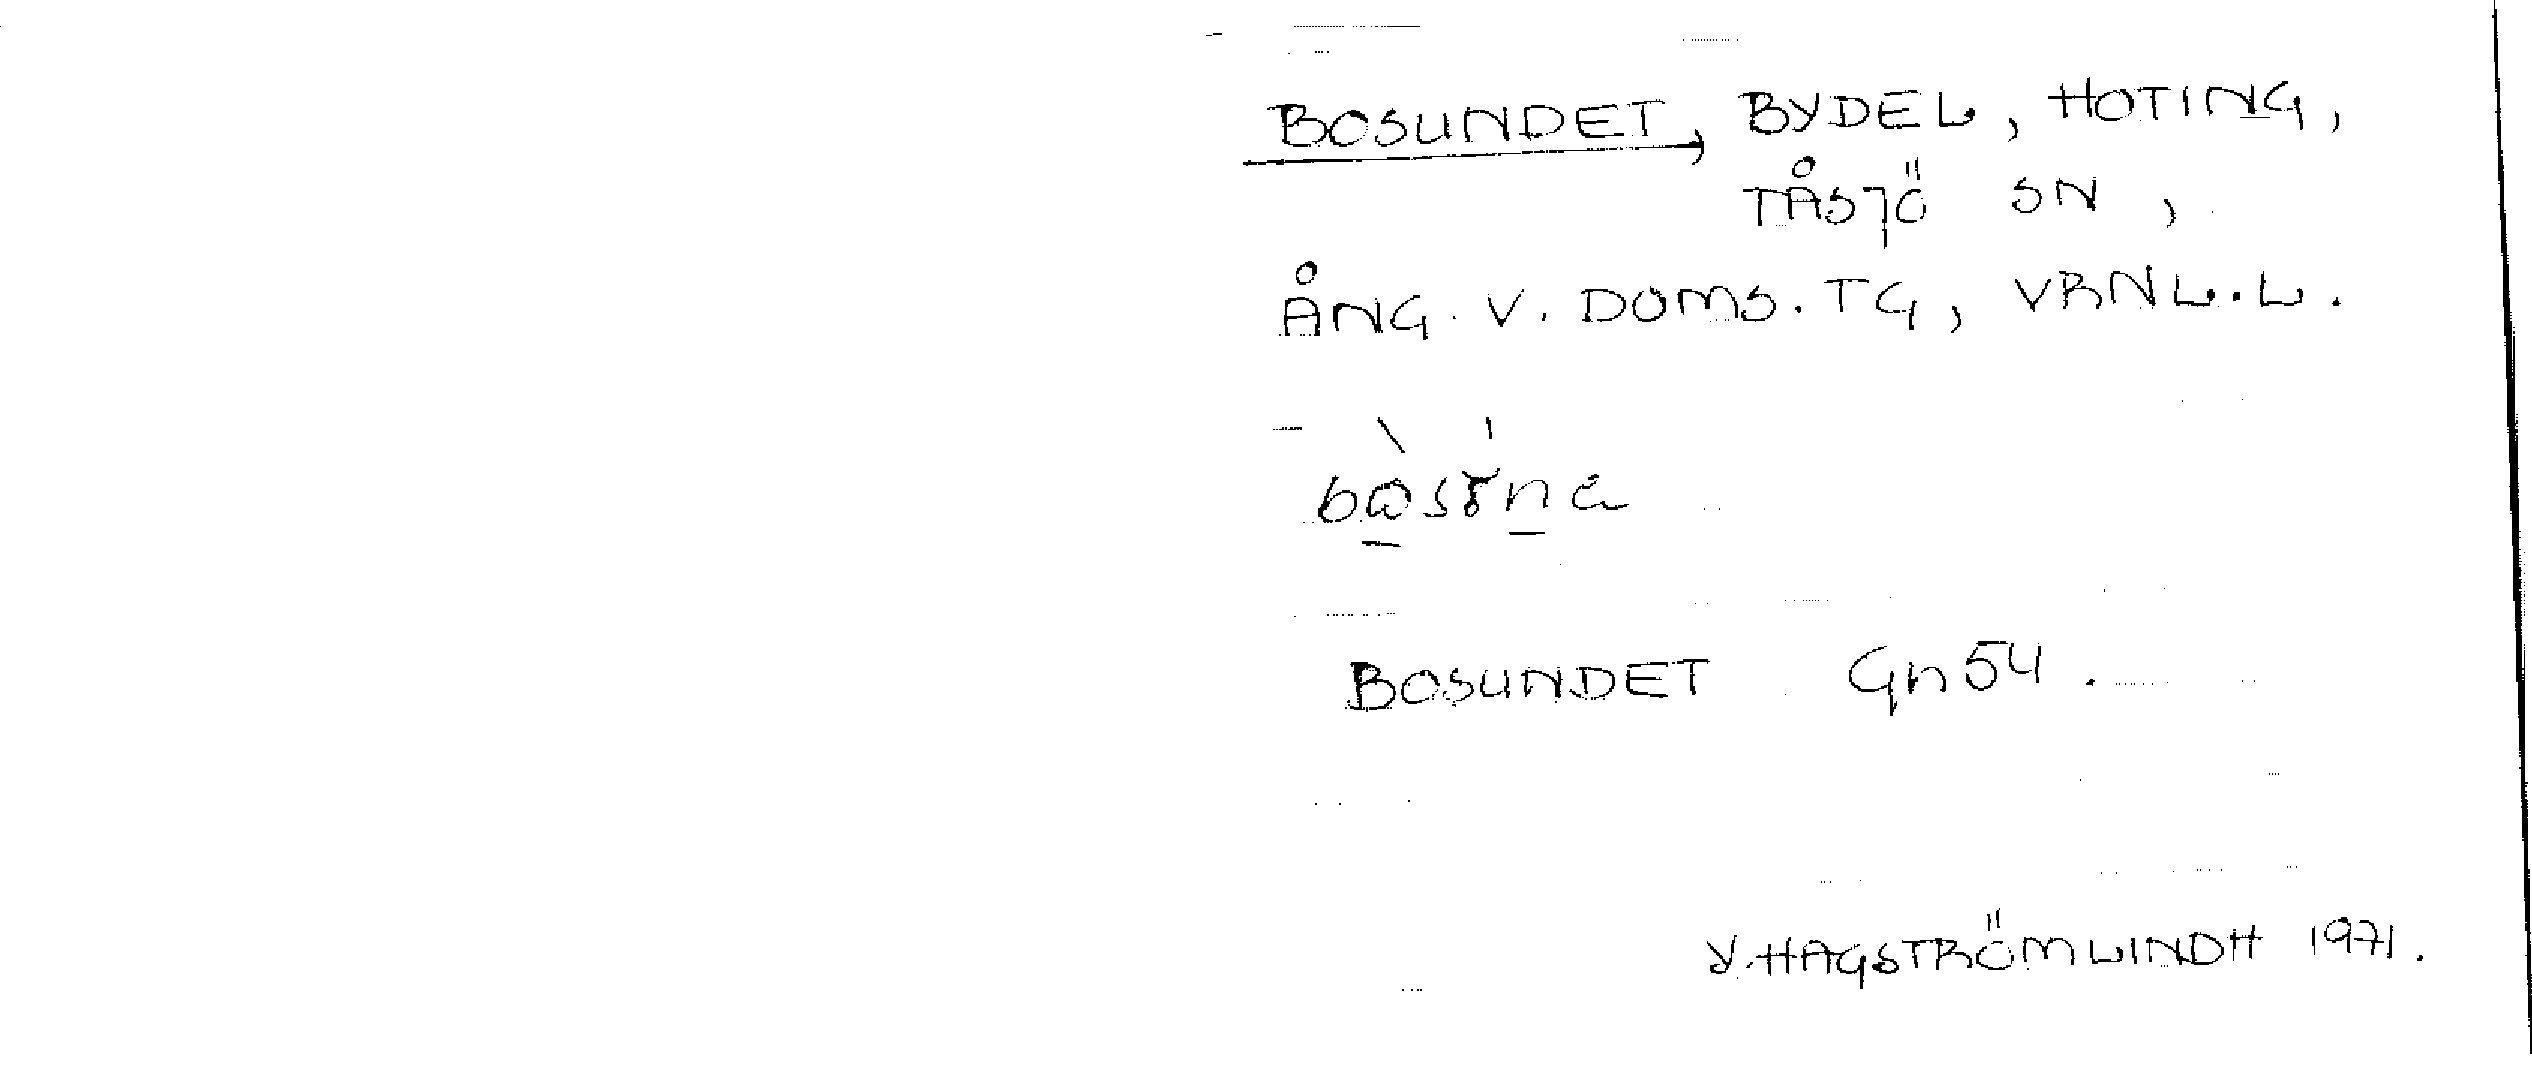 BOSUNDET, BYDEL, HOTING,
TÅSJÖ SN,
ÅNG. V. DOMS. TG, VRNL.L.
BOSUNDET Gn54.
Y.HAGSTRÖMLINDH 1971.